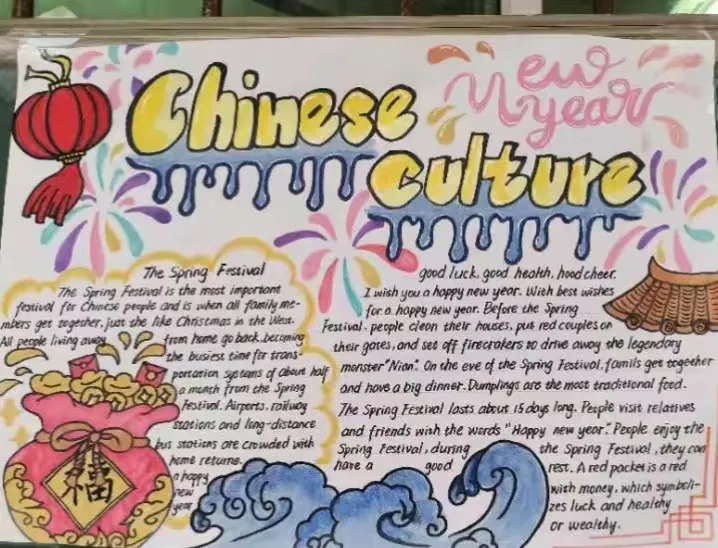 Chinese
culture
new
year
The Spring Festival
The Spring Festival is the most important
festival for Chinese people and is when all family me-
mbers get together, just the like Christmas in the West.
All people living away from home go back, becoming
the busiest time for trans-
portation systems of about half
a month from the Spring
Festival. Airports, railway
stations and long-distance
bus stations are crowded with
home returne.
a happy
new
year
good luck, good health, hood cheer.
I wish you a happy new year. With best wishes
for a happy new year. Before the Spring
Festival, people clean their houses, put red couples on
their gates, and set off firecrakers to drive away the legendary
monster "Nian". On the eve of the Spring Festival, famils get together
and have a big dinner. Dumplings are the most traditional food.
The Spring Festival lasts about 15 days long. People visit relatives
and friends with the words "Happy new year". People enjoy the
Spring Festival, during the Spring Festival, they can
have a good rest. A red packet is a red
with money, which symboli-
zes luck and healthy
or wealthy.
福